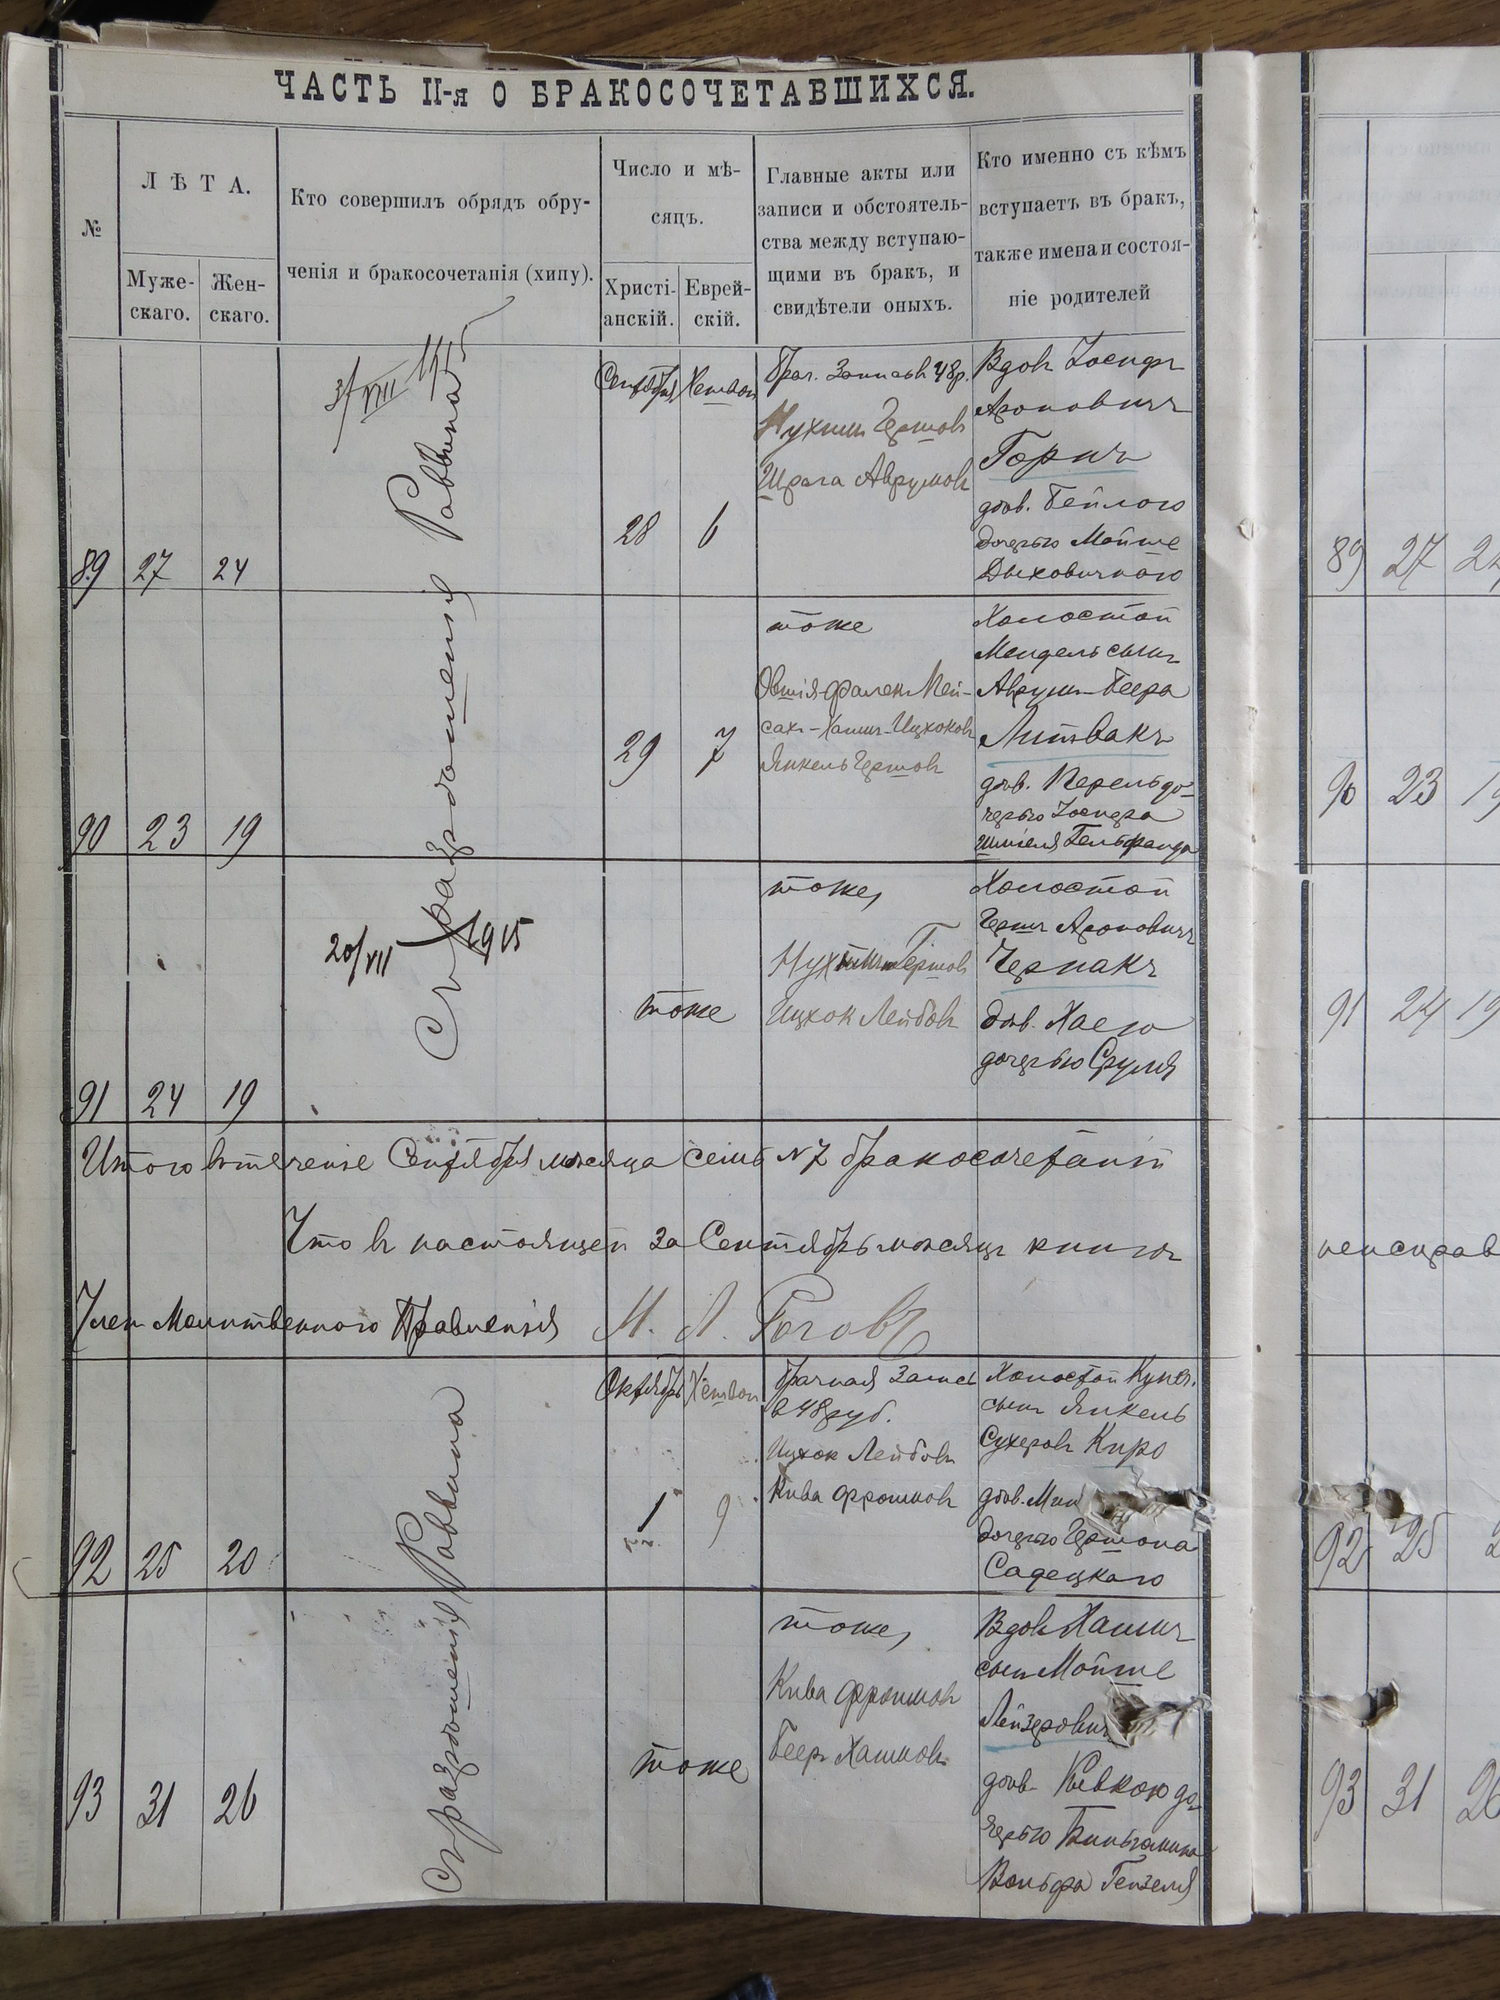 ЧАСТЬ II-я О БРАКОСОЧЕТАВШИХСЯ.
№
ЛѢТА.
Муже-
скаго.
Жен-
скаго.
Кто совершилъ обрядъ обру-
ченія и бракосочетанія (хипу).
Число и мѣ-
сяцъ.
Христі-
анскій.
Еврей-
скій.
Главные акты или
записи и обстоятель-
ства между вступаю-
щими въ бракъ, и
свидѣтели оныхъ.
Кто именно съ кѣмъ
вступаетъ въ бракъ,
также имена и состоя-
ніе родителей
Съ разрѣшенія Раввина
89 27 24
Сентября Хешван
28 6
Брач. Запись в 48 р.
Нухим Гершов
Шрага Аврумов
Вдов Іосифъ
Ароновичъ
Горич
дѣв. Бейлою
дочерью Мойше
Дыховичнаго
90 23 19
29 7
тоже
Овшія-Фалек Пей-
сах-Хаим-Ицхоков
Янкель Гершов
Холостой
Мендель сынъ
Аврум-Беера
Литвакъ
дѣв. Перель до-
черью Іосифа
Шмiеля Гельфанда
20/VII 1915
91 24 19
тоже
тоже,
Нухим Гершов
Ицхок Лейбов
Холостой
Герш Ароновичъ
Чернакъ
дѣв. Хаею
дочерью Сруля
Итого втеченіе Сентября мѣсяца семь N 7 бракосочетаній
Что в настоящей за Сентябрь мѣсяцъ книге
Член Молитвенного Правленія М. Л. Рогов
Съ разрѣшенія Раввина
92 25 20
Октябрь Хешван
1 9
Брачная Запись
в 48 руб.
Ицхок Лейбов
Кива Фроимов
Холостой Купеч.
сынъ Янкель
Сухеров Киро
дѣв.
дочерью Гершона
Садецкаго
93 31 26
тоже
тоже,
Кива Фроимов
Беер Хаимов
Вдов Хаимъ
сын Мойше
Лейзерович
дѣв. Ривкою до-
черью Биньямина
Вольфа Гензеля
89 27 24
90 23 19
91 24 19
неисправ
92 25 2
93 31 26